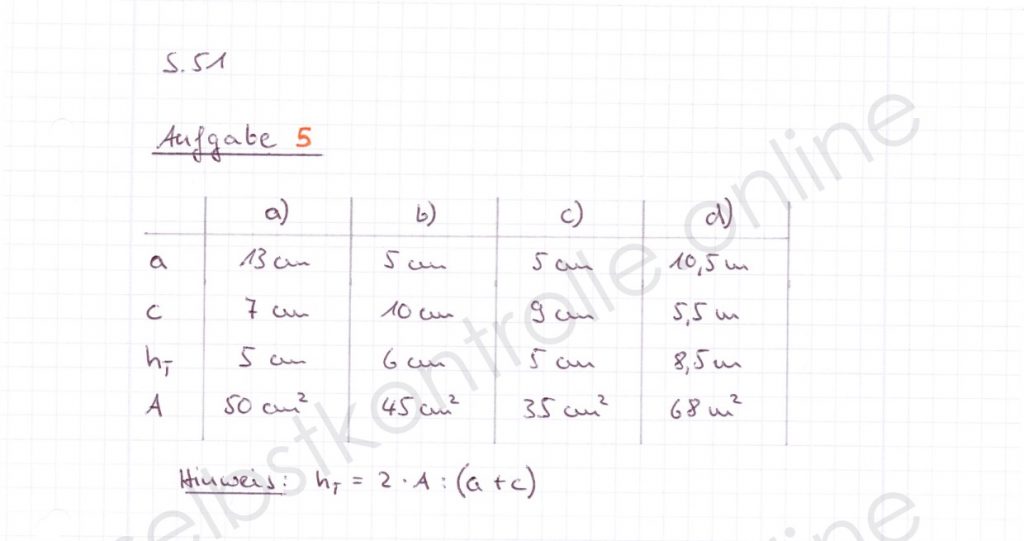 S. 51
Aufgabe 5
a) b) c) d)
a 13 cm 5 cm 5 cm 10,5 m
c 7 cm 10 cm 9 cm 5,5 m
h_T 5 cm 6 cm 5 cm 8,5 m
A 50 cm² 45 cm² 35 cm² 68 m²
Hinweis: h_T = 2 · A : (a + c)
selbstkontrolle.online
ine